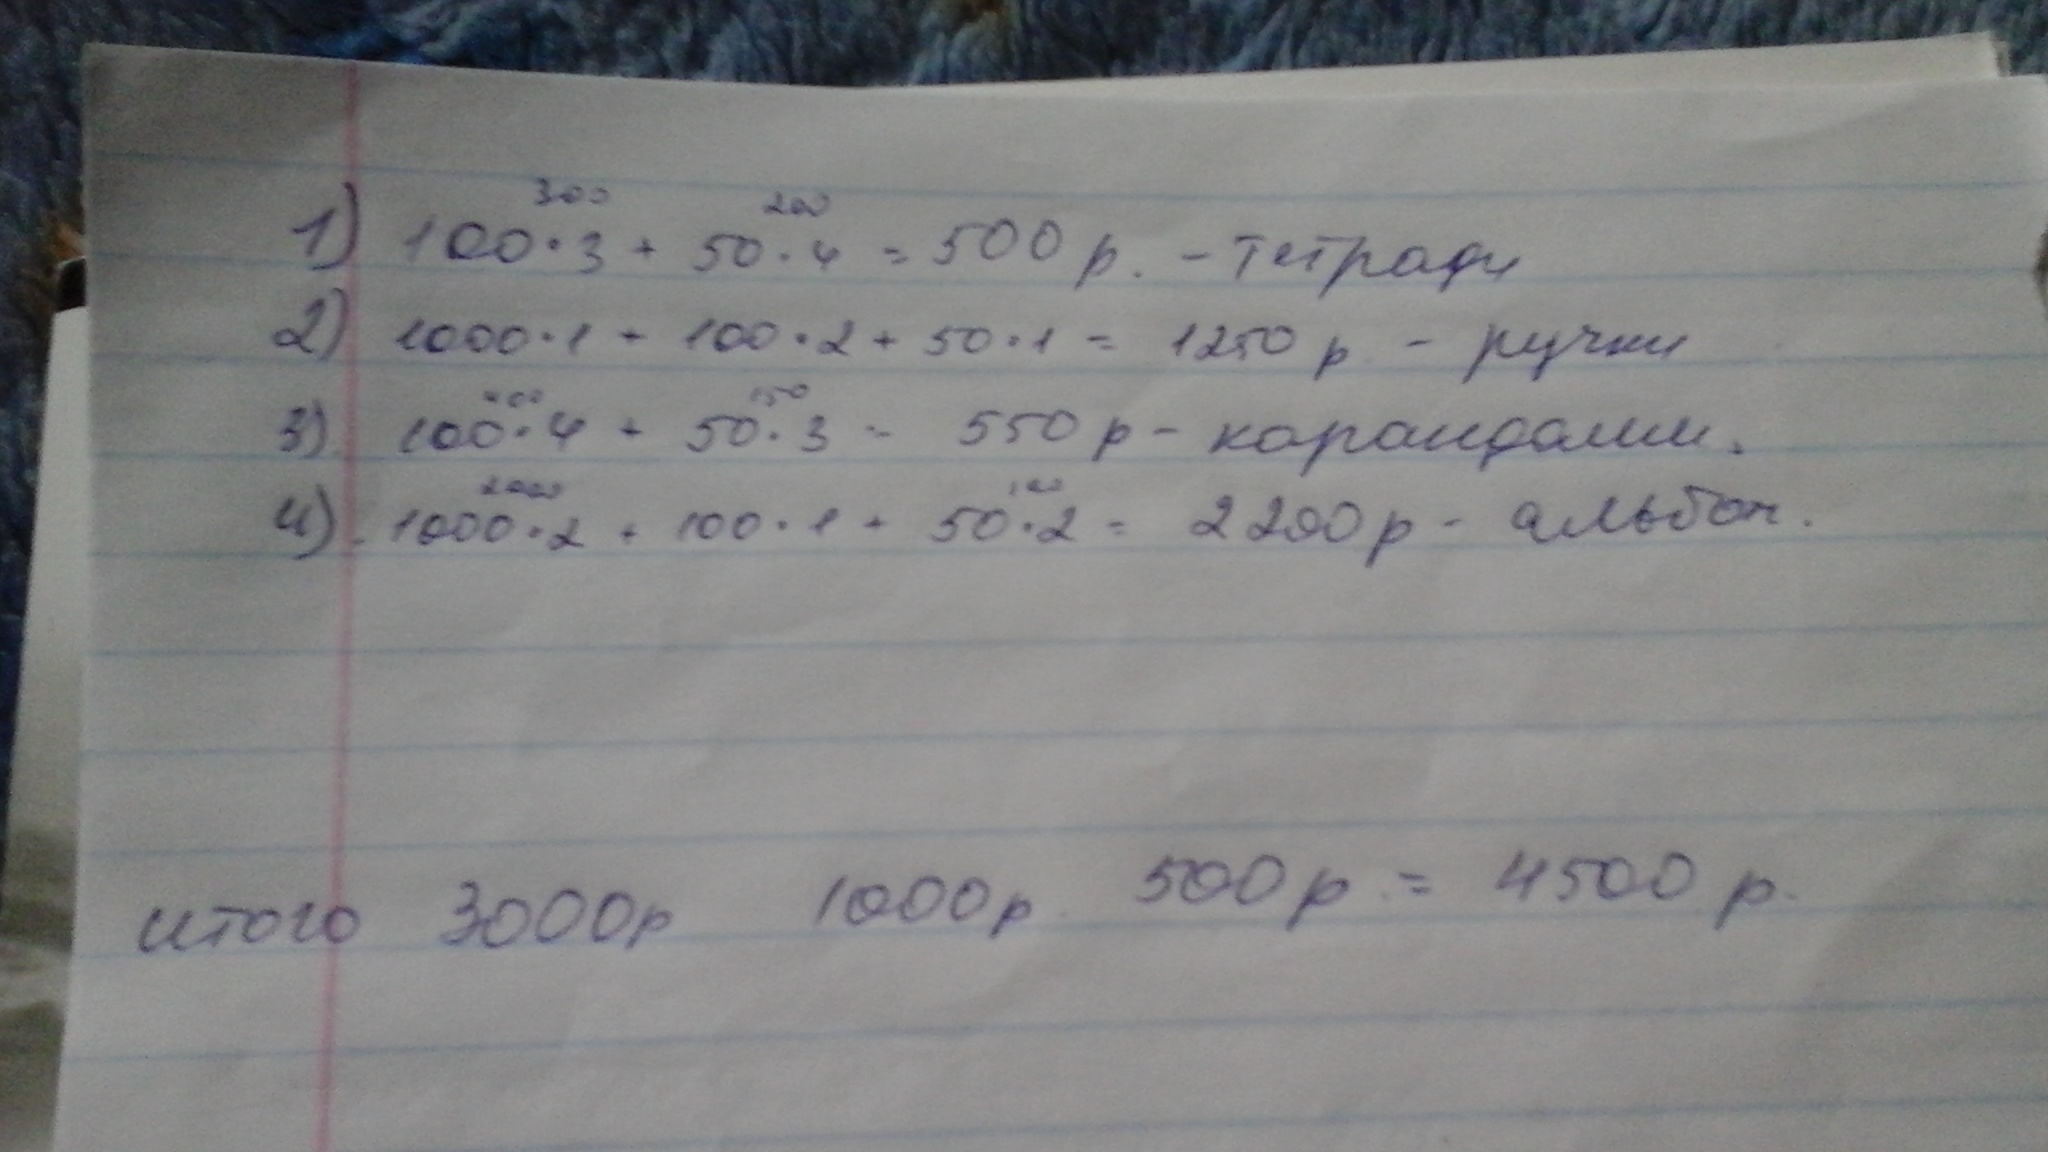 300 200
1) 100·3 + 50·4 = 500 р. - тетради
2) 1000·1 + 100·2 + 50·1 = 1250 р - ручки
400 150
3) 100·4 + 50·3 = 550 р - карандаши.
2000 100
4) 1000·2 + 100·1 + 50·2 = 2200 р - альбом.
итого 3000р 1000р. 500р. = 4500 р.